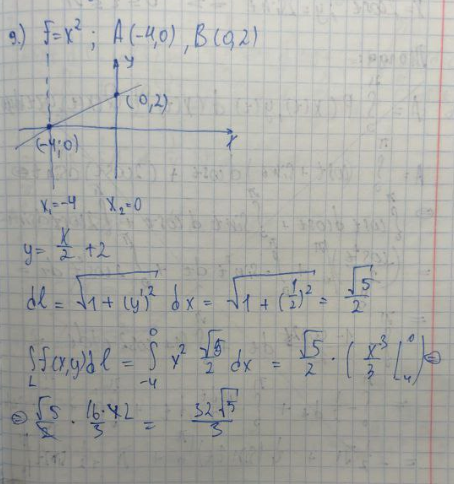 9.) f=x²; A(-4,0), B(0,2)
y
(0,2)
(-4;0) x
x₁=-4 x₂=0
y= x/2 +2
dl= √(1+(y')²) dx = √(1+(1/2)²) = √5/2
∫_L f(x,y)dl = ∫_{-4}^{0} x² √5/2 dx = √5/2 · (x³/3 |_4^0) ⊜
⊜ √5/2 · 16·42/3 = 32√5/3